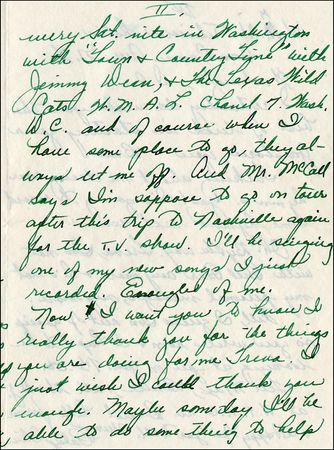 II.
every Sat. nite in Washington
with "Town & Country Time" with
Jimmy Dean, & The Texas Wild
Cats. W.M.A.L. Chanel 7. Wash.
D.C. and of course when I
have some place to go, they al-
ways let me off. And Mr. McCall
says I'm suppose to go on tour
after this trip to Nashville again
for the T.V. show. I'll be singing
one of my new songs I just
recorded. Enough of me.
Now I want you to know I
really thank you for the things
you are doing for me Trena. I
just wish I could thank you
enough. Maybe someday I'll be
able to do some thing to help